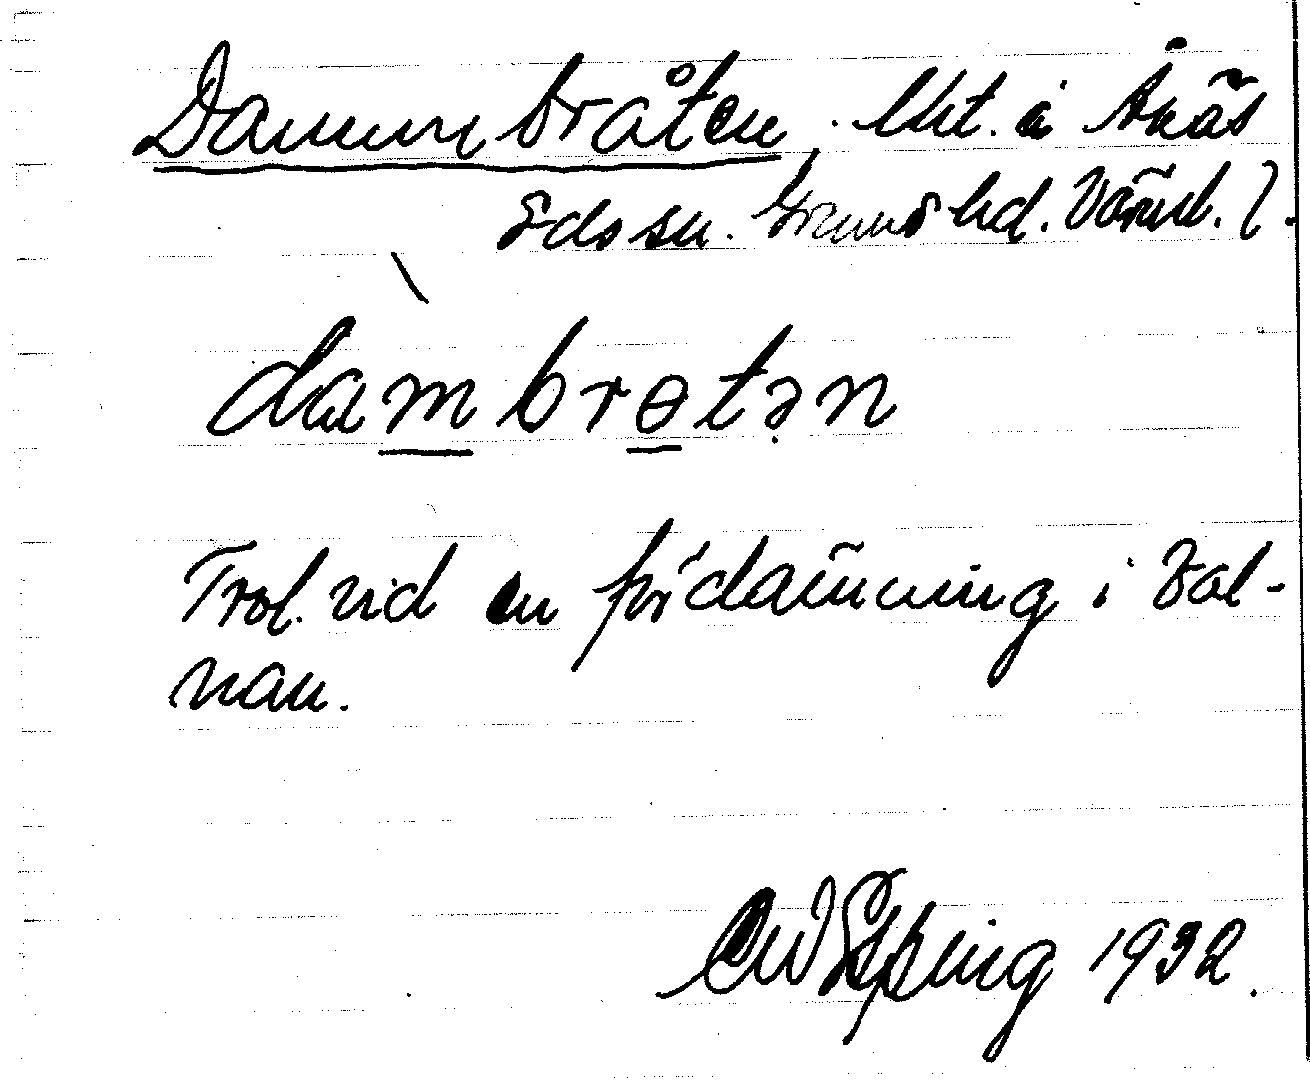 Dammbråten. Lht. å Ånäs
Eds sn. Grums hd. Värml. l.
dàmbrɵtən
Trol. vid en fördämning i Bol-
nan.
1932.